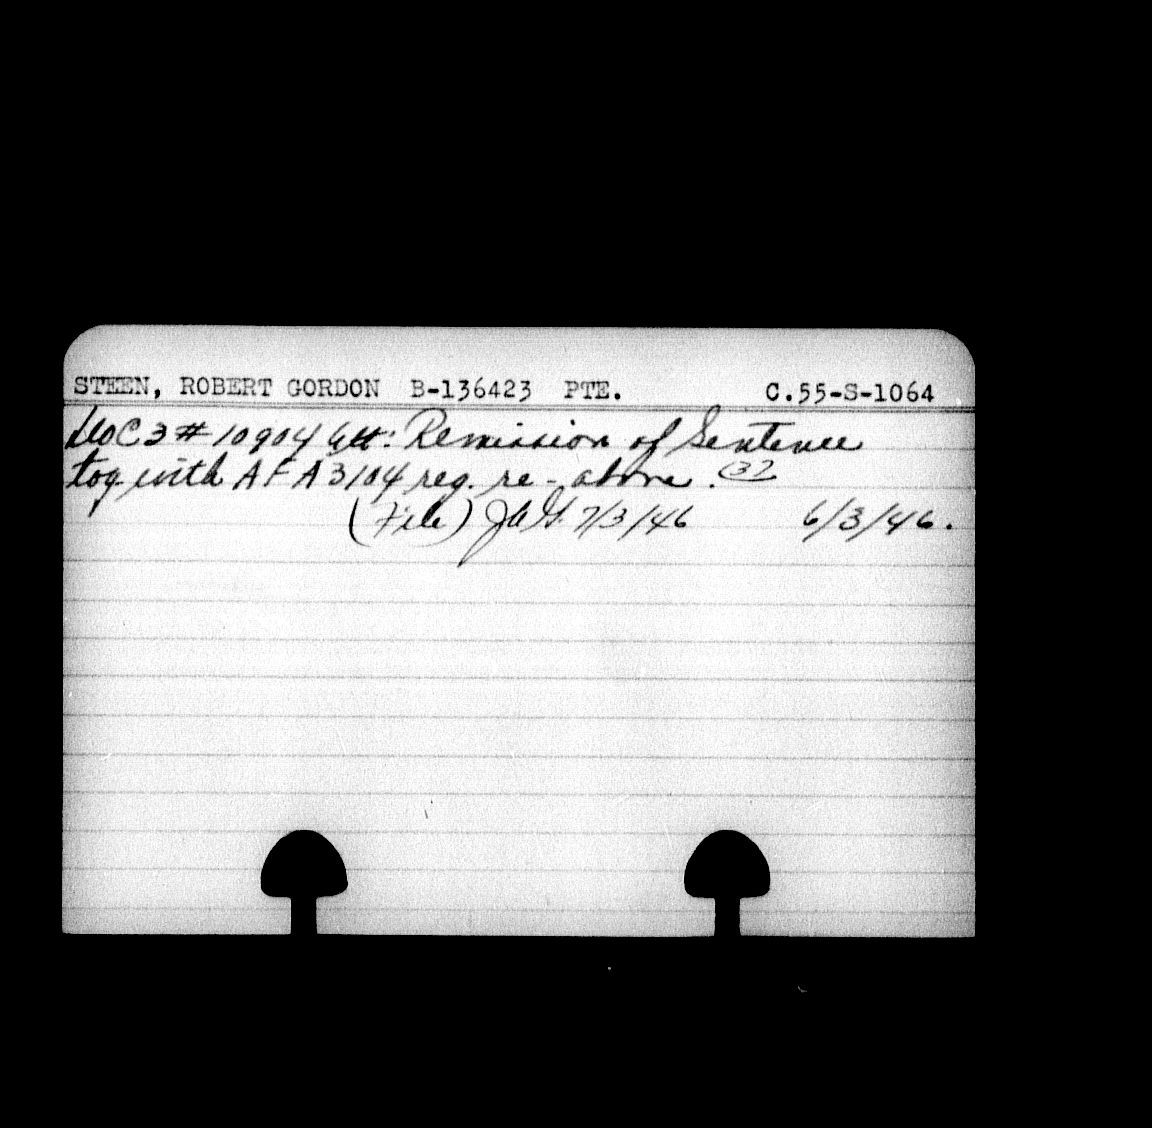 STEEN, ROBERT GORDON B-136423 PTE. C.55-S-1064
MoC3 # 10904 att: Remission of Sentence
tog. with AFA 3104 reg. re - above. 32
(File) JAG. 7/3/46 6/3/46.